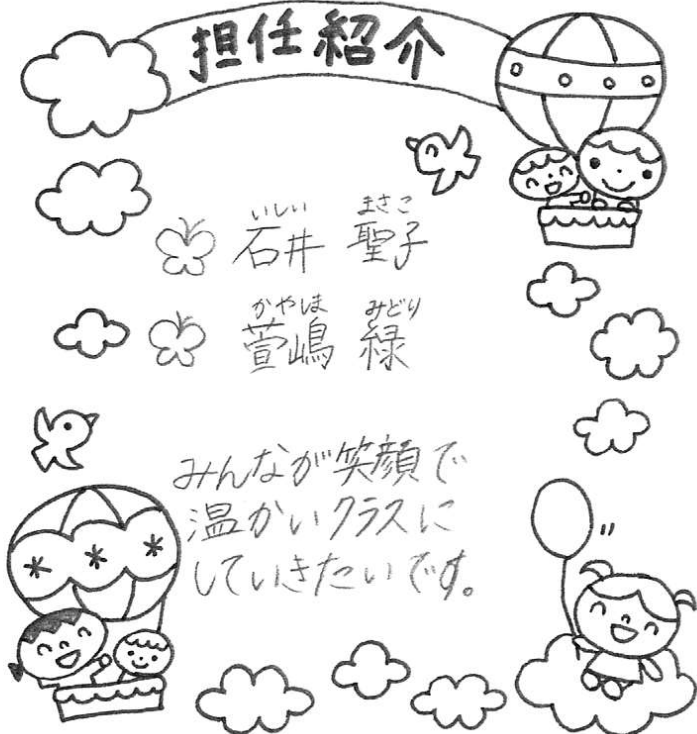 担任紹介
いしい まさこ
石井 聖子
かやしま みどり
萱嶋 緑
みんなが笑顔で
温かいクラスに
していきたいです。